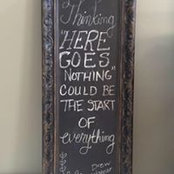 Thinking
"HERE
GOES
NOTHING"
COULD BE
THE START
OF
everything
Drew